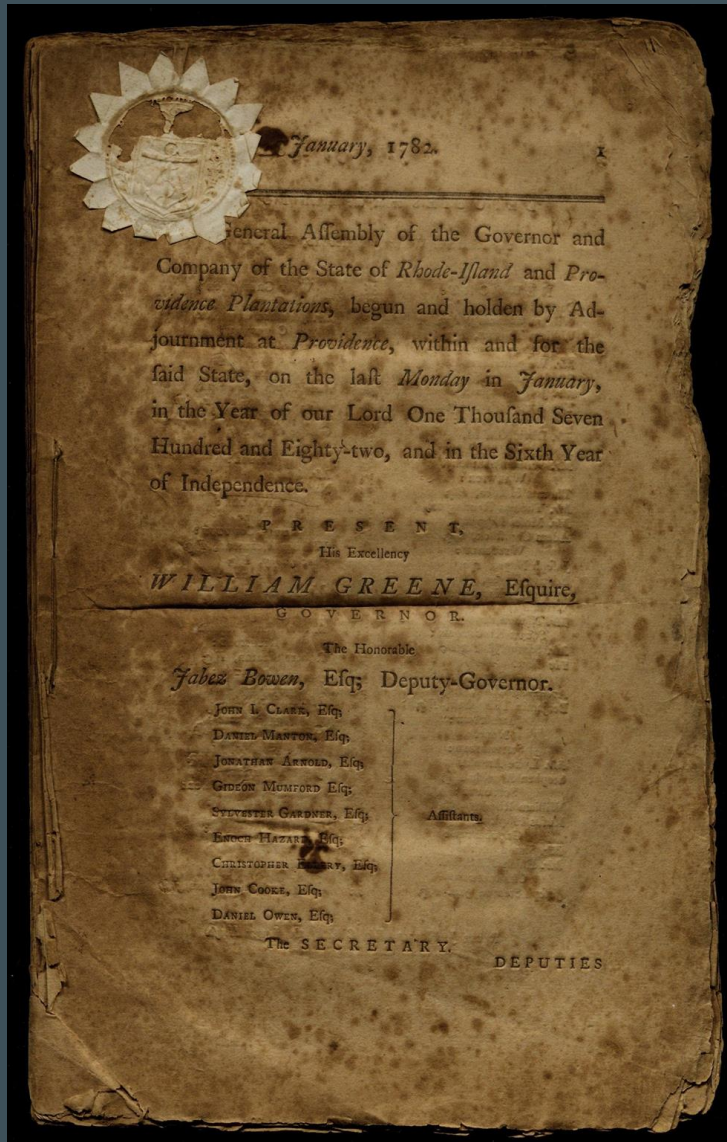 January, 1782. 1
General Aſſembly of the Governor and
Company of the State of Rhode-Iſland and Pro-
vidence Plantations, begun and holden by Ad-
journment at Providence, within and for the
ſaid State, on the laſt Monday in January,
in the Year of our Lord One Thouſand Seven
Hundred and Eighty-two, and in the Sixth Year
of Independence.
PRESENT,
His Excellency
WILLIAM GREENE, Eſquire,
GOVERNOR.
The Honorable
Jabez Bowen, Eſq; Deputy-Governor.
JOHN I. CLARK, Eſq;
DANIEL MANTON, Eſq;
JONATHAN ARNOLD, Eſq;
GIDEON MUMFORD Eſq;
SYLVESTER GARDNER, Eſq; Aſſiſtants.
ENOCH HAZARD, Eſq;
CHRISTOPHER ELLERY, Eſq;
JOHN COOKE, Eſq;
DANIEL OWEN, Eſq;
The SECRETARY.
DEPUTIES